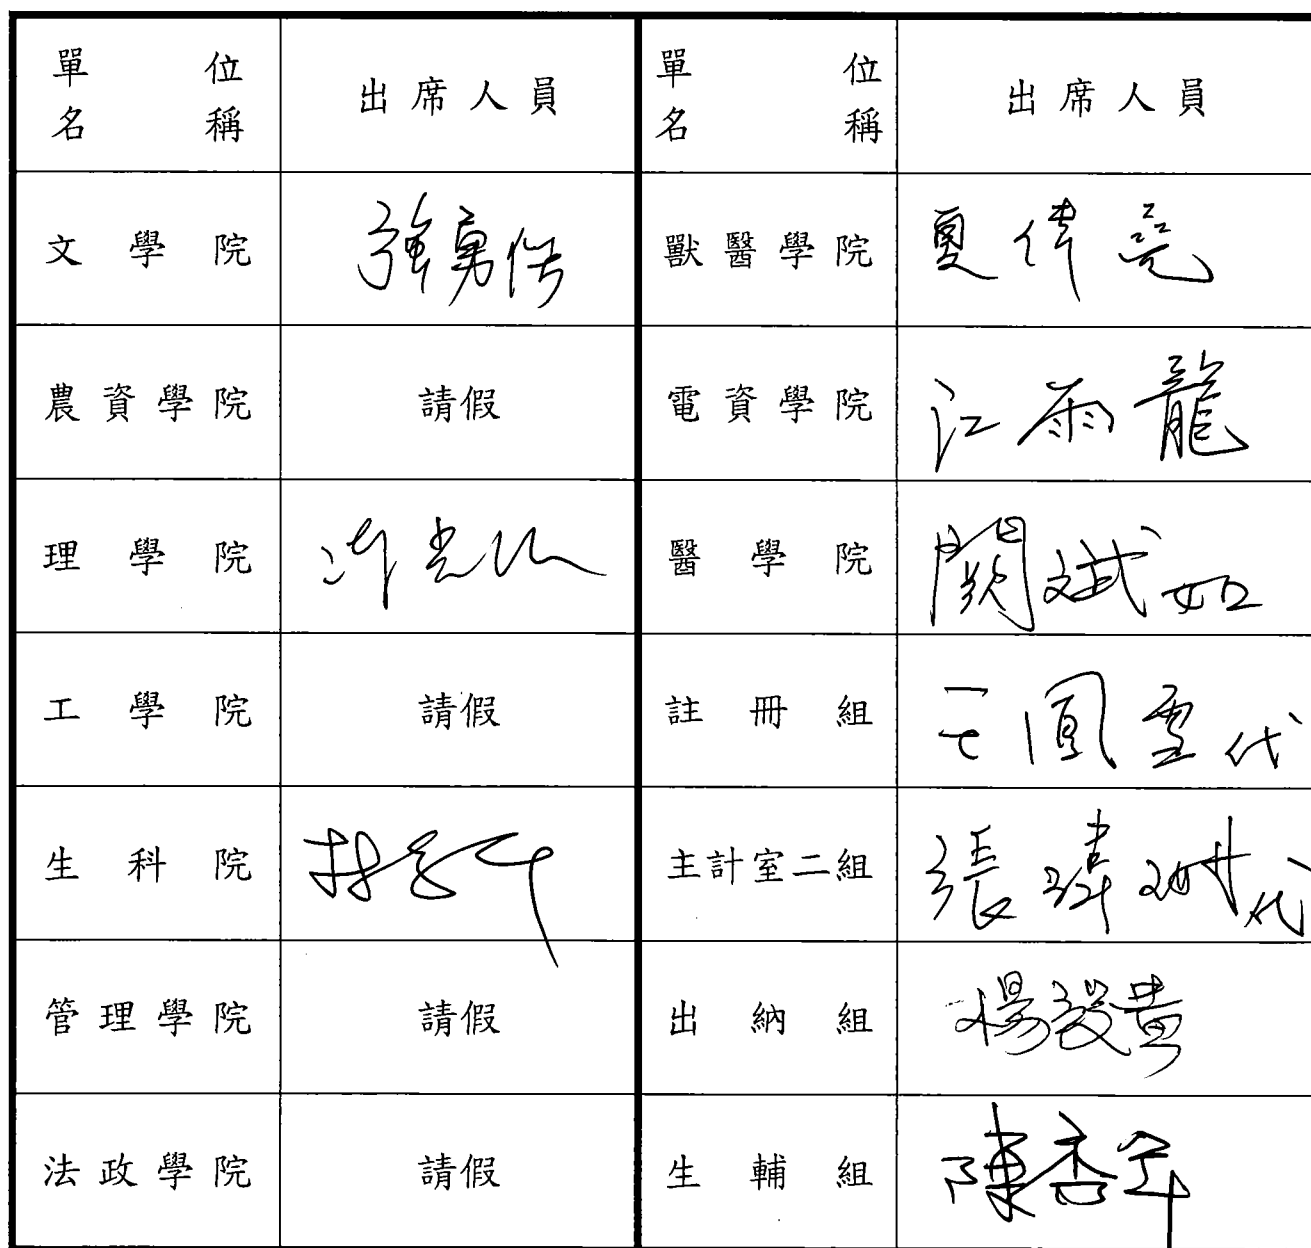 單位名稱 出席人員 單位名稱 出席人員
文學院 獸醫學院 夏偉
農資學院 請假 電資學院 江雨龍
理學院 醫學院 闕斌如
工學院 請假 註冊組 王鳳雪代
生科院 主計室二組 張瑋
管理學院 請假 出納組 楊
法政學院 請假 生輔組 陳